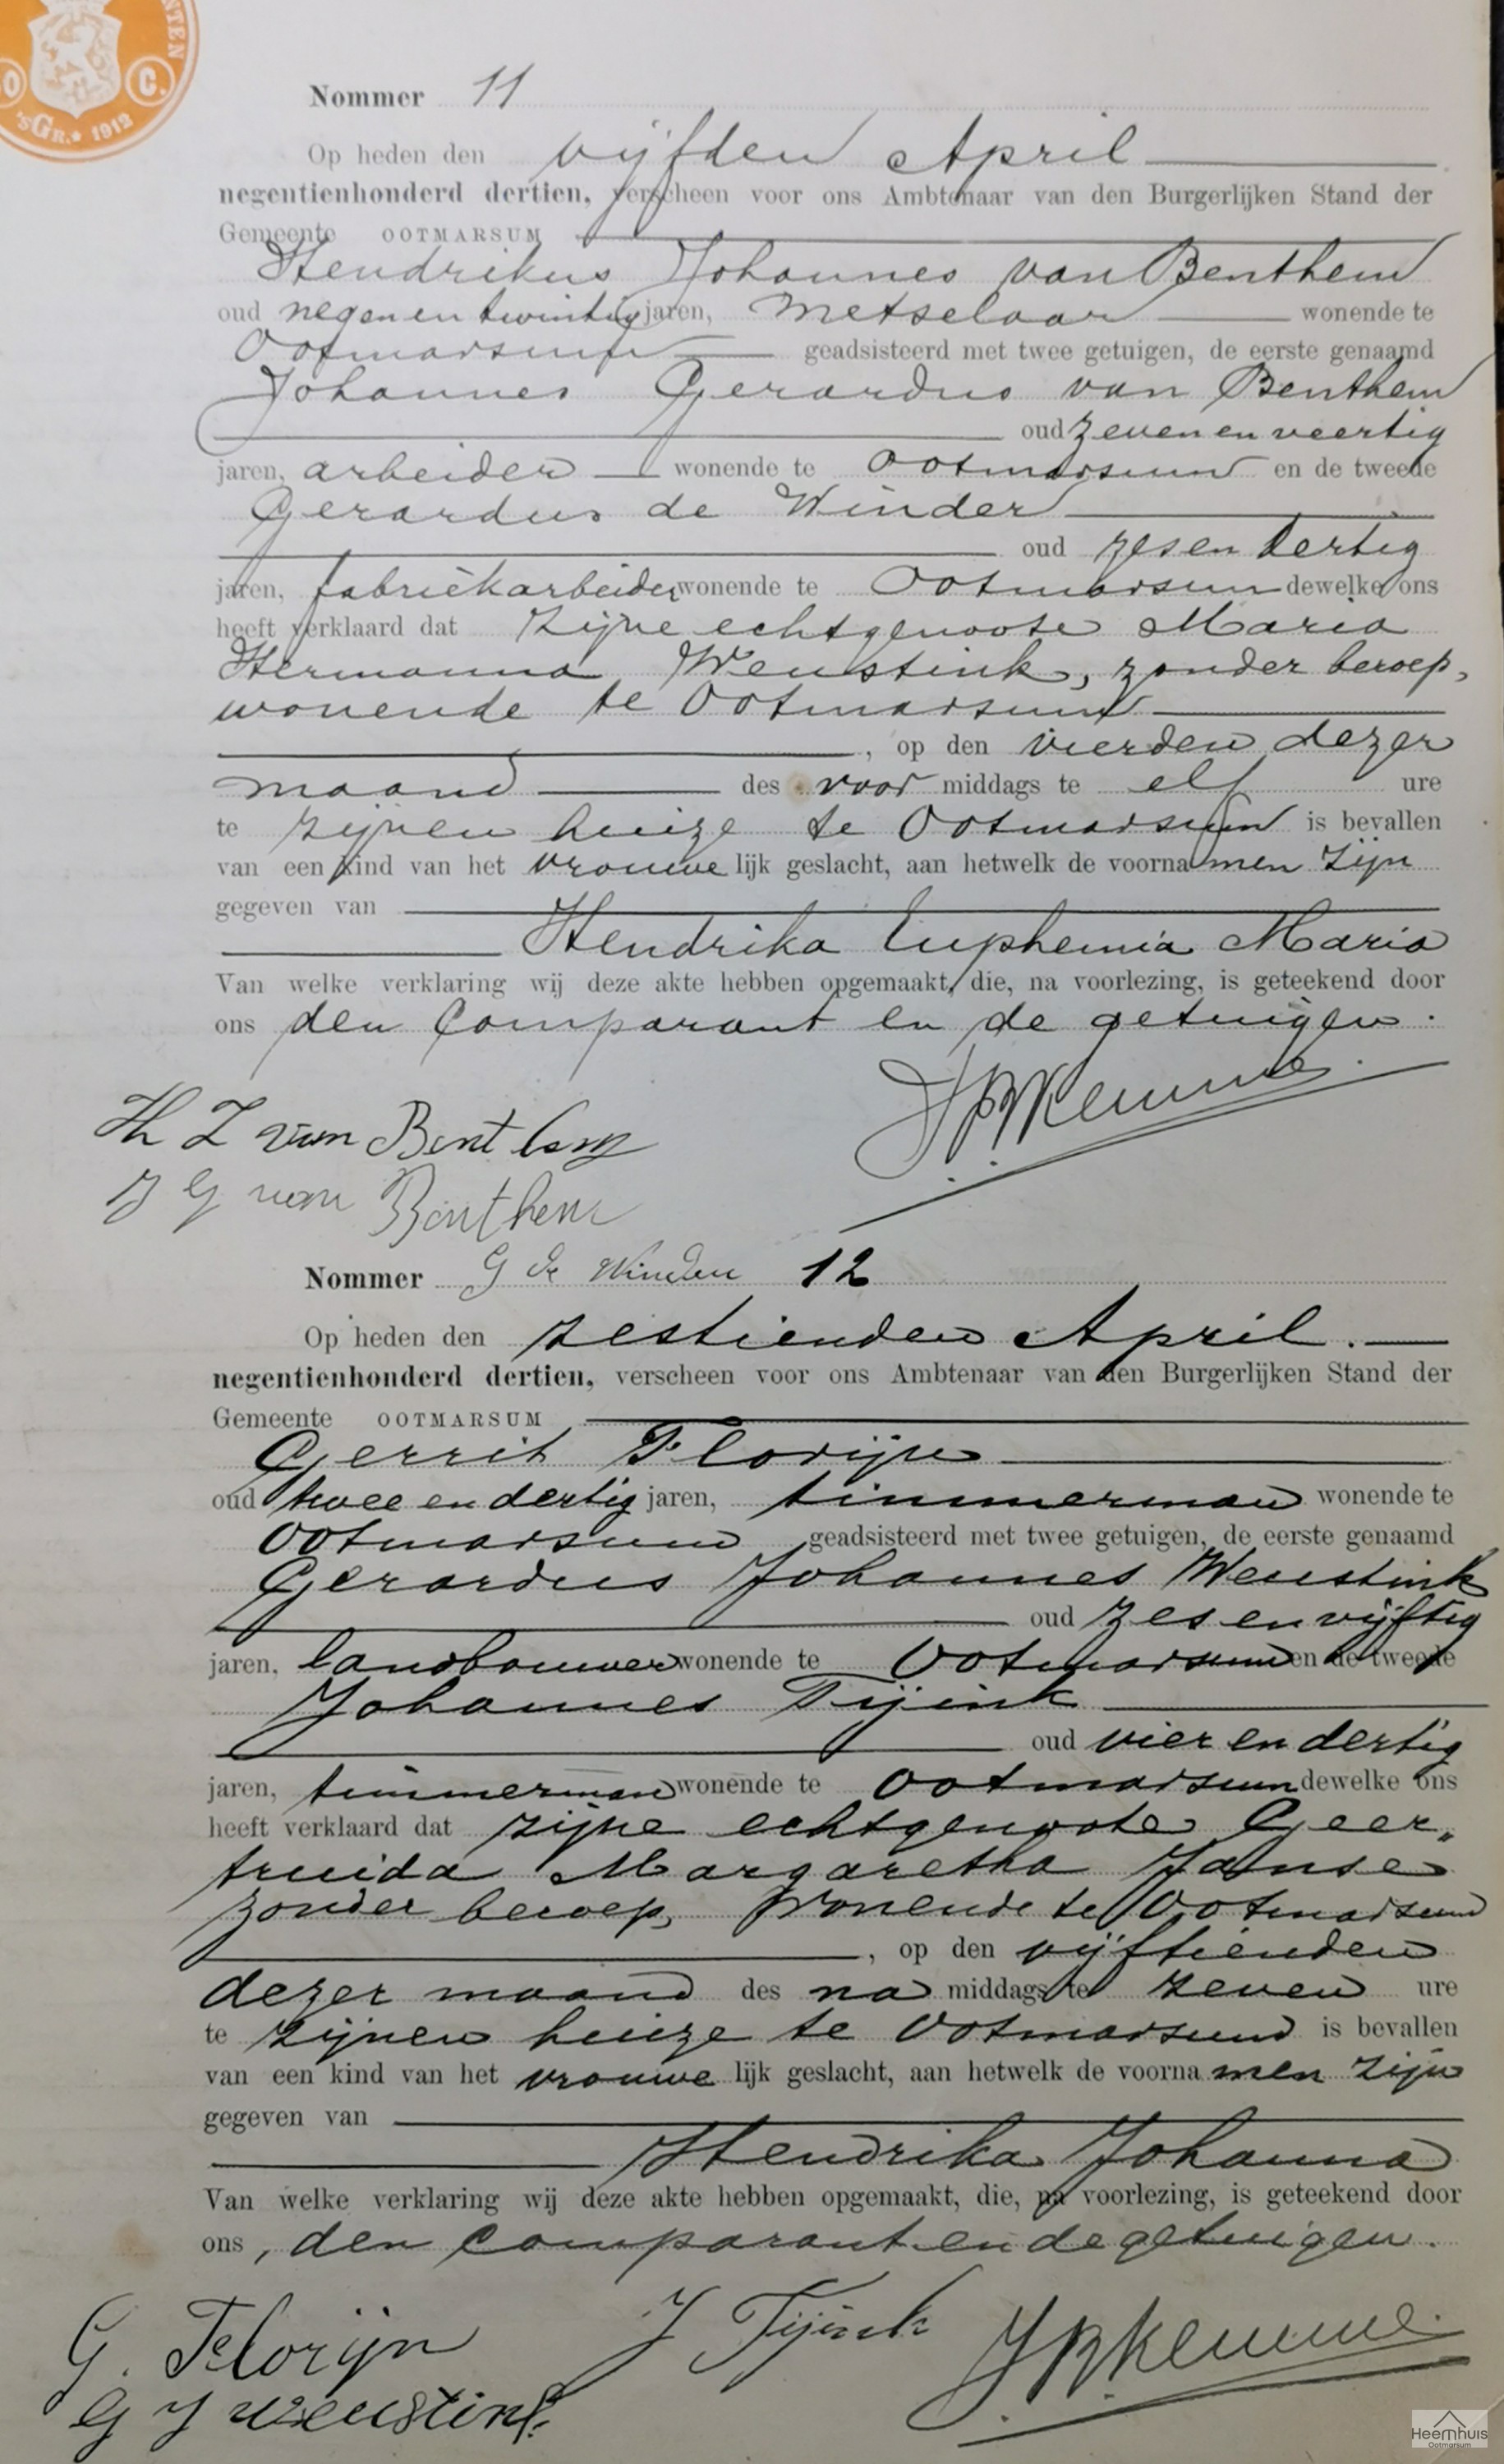 NTEN
50 C.
'sGr. * 1912
Nommer 11
Op heden den vijfden April
negentienhonderd dertien, verscheen voor ons Ambtenaar van den Burgerlijken Stand der
Gemeente OOTMARSUM
Hendrikus Johannes van Benthem
oud negen en twintig jaren, metselaar wonende te
Ootmarsum geadsisteerd met twee getuigen, de eerste genaamd
Johannes Gerardus van Benthem
oud zeven en veertig
jaren, arbeider wonende te Ootmarsum en de tweede
Gerardus de Winder
oud zes en dertig
jaren, fabriekarbeider wonende te Ootmarsum dewelke ons
heeft verklaard dat zijne echtgenoote Maria
Hermanna Weustink, zonder beroep,
wonende te Ootmarsum
, op den vierden dezer
maand des voor middags te elf ure
te zijnen huize te Ootmarsum is bevallen
van een kind van het vrouwe lijk geslacht, aan hetwelk de voorna men zijn
gegeven van
Hendrika Euphemia Maria
Van welke verklaring wij deze akte hebben opgemaakt, die, na voorlezing, is geteekend door
ons den Comparant en de getuigen.
van Benthem
J G van Benthem
Nommer G de Winder 12
Op heden den zestienden April.
negentienhonderd dertien, verscheen voor ons Ambtenaar van den Burgerlijken Stand der
Gemeente OOTMARSUM
Gerrit Florijn
oud twee en dertig jaren, timmerman wonende te
Ootmarsum geadsisteerd met twee getuigen, de eerste genaamd
Gerardus Johannes Weustink
oud zes en vijftig
jaren, landbouwer wonende te Ootmarsum en de tweede
Johannes Tijink
oud vier en dertig
jaren, timmerman wonende te Ootmarsum dewelke ons
heeft verklaard dat zijne echtgenoote Geer„
truida Margaretha Janse
zonder beroep, wonende te Ootmarsum
, op den vijftienden
dezer maand des na middags te zeven ure
te zijnen huize te Ootmarsum is bevallen
van een kind van het vrouwe lijk geslacht, aan hetwelk de voorna men zijn
gegeven van
Hendrika Johanna
Van welke verklaring wij deze akte hebben opgemaakt, die, na voorlezing, is geteekend door
ons, den Comparant en de getuigen.
G. Florijn J Tijink
G J Weustink
Heemhuis
Ootmarsum